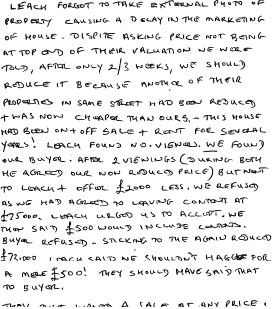 LEACH FORGOT TO TAKE EXTERNAL PHOTO OF
PROPERTY CAUSING A DELAY IN THE MARKETING
OF HOUSE. DISPITE ASKING PRICE NOT BEING
AT TOP END OF THEIR VALUATION WE WERE
TOLD, AFTER ONLY 2/3 WEEKS, WE SHOULD
REDUCE IT BECAUSE ANOTHER OF THEIR
PROPERTIES IN SAME STREET HAD BEEN REDUCED
+ WAS NOW CHEAPER THAN OURS, - THIS HOUSE
HAD BEEN ON + OFF SALE + RENT FOR SEVERAL
YEARS! LEACH FOUND NO VIEWERS. WE FOUND
OUR BUYER. AFTER 2 VIEWINGS (DURING BOTH
HE AGREED OUR NON REDUCED PRICE) BUT WENT
TO LEACH + OFFER £2000 LESS. WE REFUSED
AS WE HAD AGREED TO LEAVING CONTENT AT
LEACH URGED US TO ACCEPT. WE
THEN SAID £500 WOULD INCLUDE
BUYER REFUSED - STICKING TO THE AGAIN REDUCED
£72,000 LEACH SAID WE SHOULDN'T HAGGLE FOR
A MERE £500! THEY SHOULD HAVE SAID THAT
TO BUYER.
A SALE AT ANY PRICE.